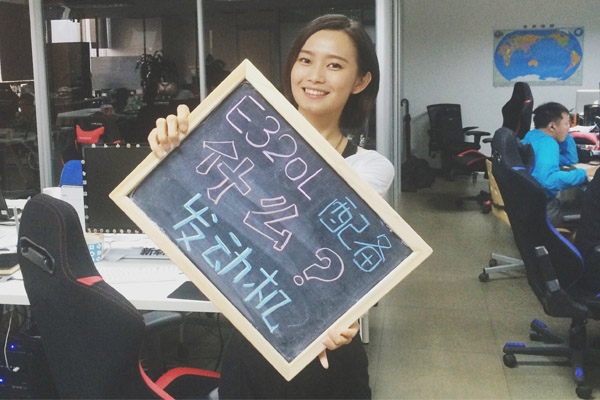 E320L
配备
什么?
发动机